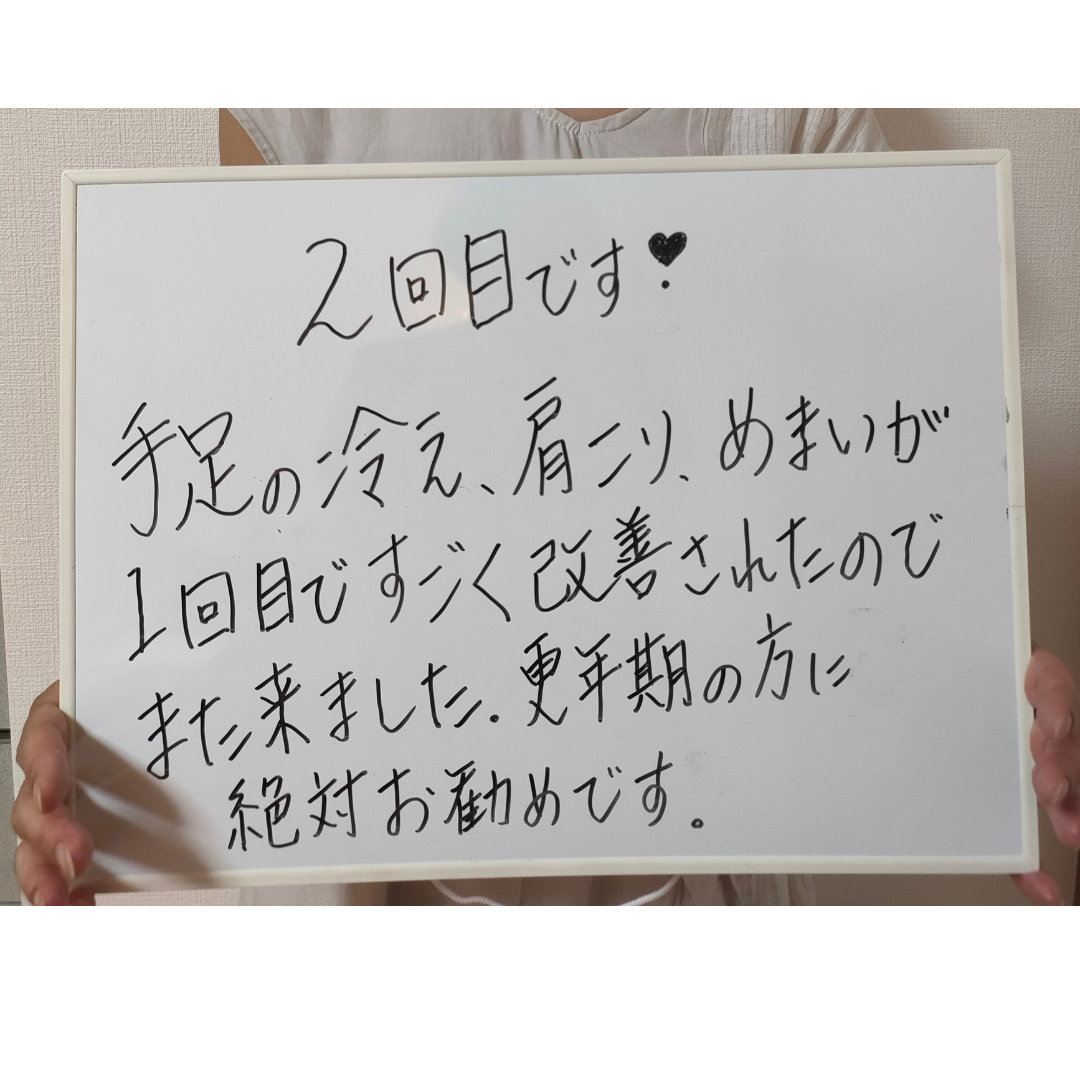 2回目です♥
手足の冷え、肩こり、めまいが
1回目ですごく改善されたので
また来ました。更年期の方に
絶対お勧めです。